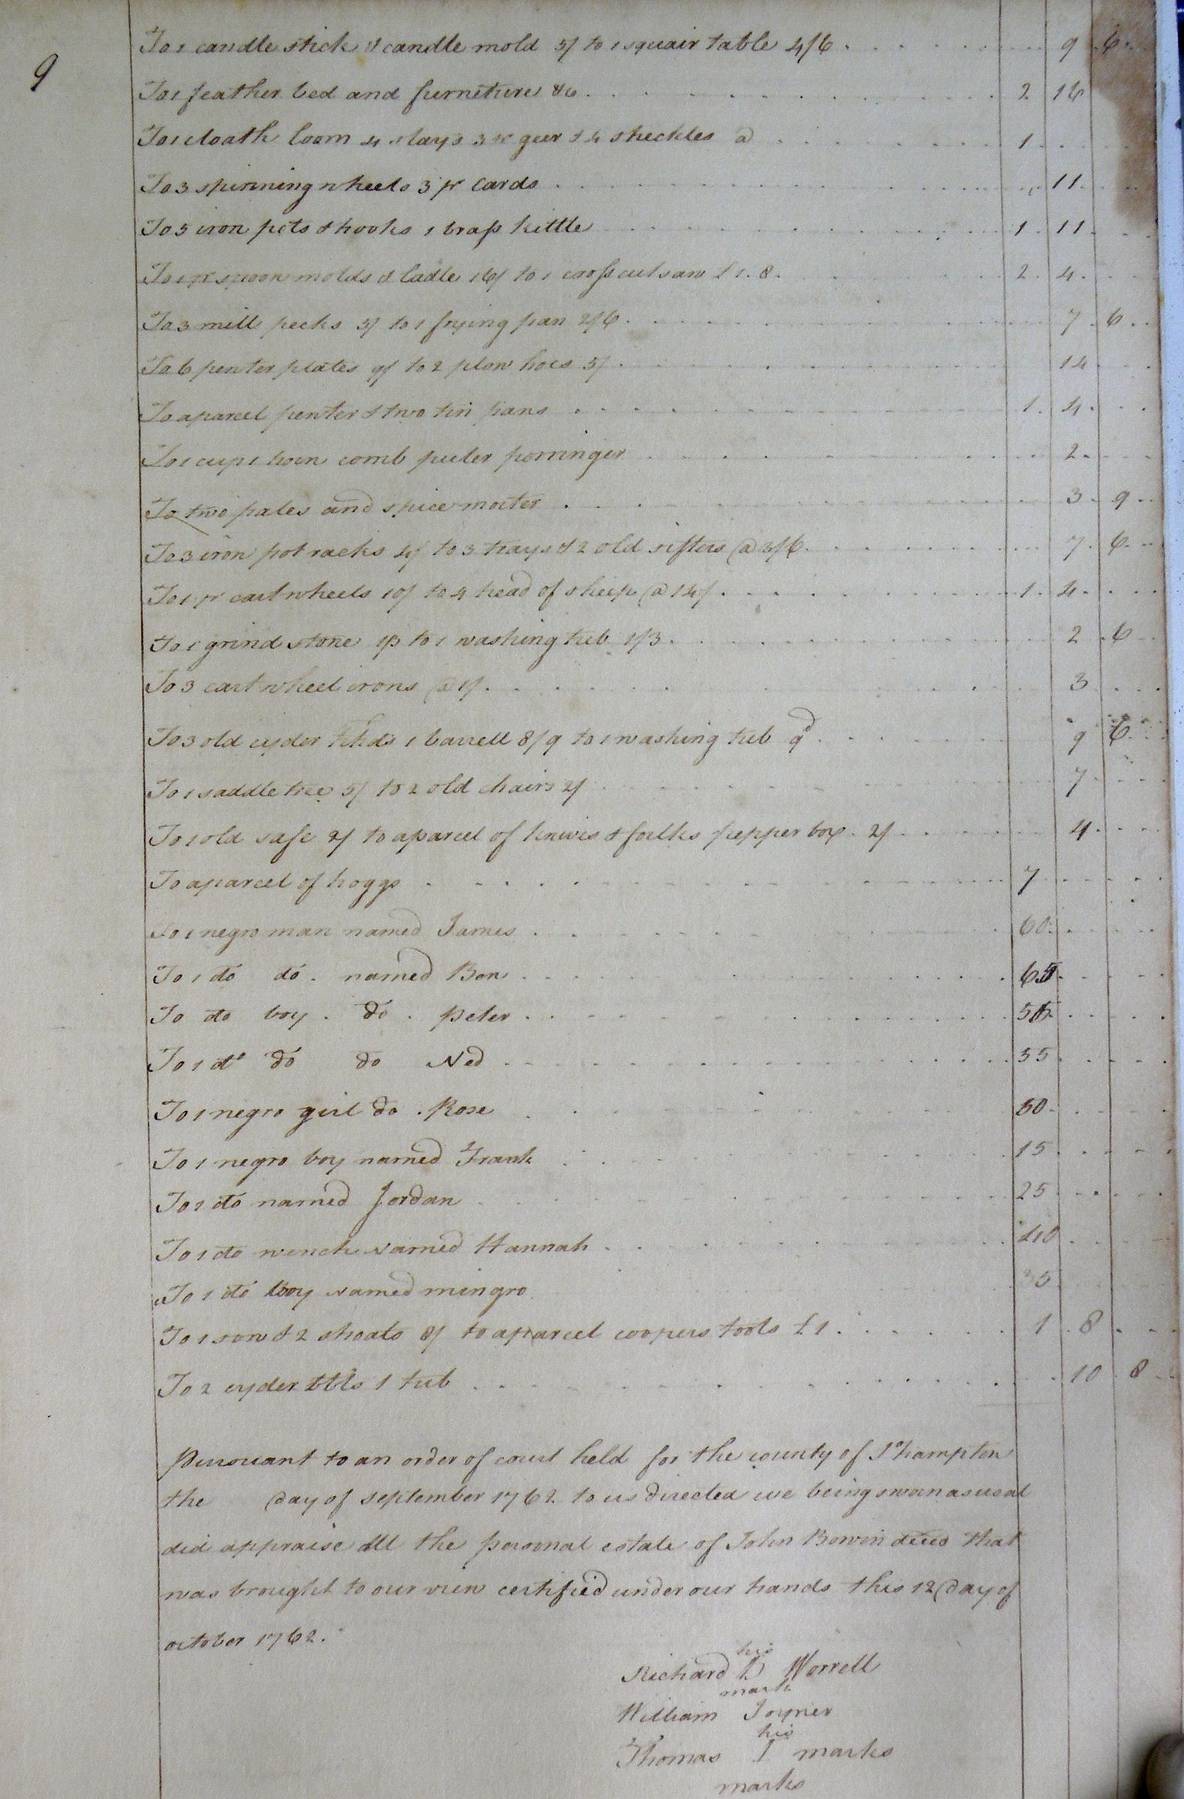 9
To 1 candle stick & candle mold 5/ to 1 squair table 4/6 . . . 9 . 6
To 1 feather bed and furneture &c . . . 2 16
To 1 cloath loom 4 slays 3 pr geer & 4 sheckles a . . . 1
To 3 spinning wheels 3 pr cards . . . 11
To 5 iron pots & hooks 1 brass kittle . . . 1 . 11
To 1 pr spoon molds & ladle 16/ to 1 cross cut saw £1 . 8 . . . 2 . 4
To 3 mill pecks 5/ to 1 frying pan 2/6 . . . 7 . 6
To 6 peuter plates 9/ to 2 plow hoes 5/ . . . 14
To a parcel peuter & two tin pans . . . 1 . 4
To 1 cup 1 horn comb puter porringer . . . 2
To two pales and spice morter . . . 3 . 9
To 3 iron pot racks 4/ to 3 trays & 2 old sifters @ 3/6 . . . 7 . 6
To 1 pr cart wheels 10/ to 4 head of sheep @ 14/ . . . 1 . 4
To 1 grind stone 1/3 to 1 washing tub 1/3 . . . 2 . 6
To 3 cart wheel irons @ 1/ . . . 3
To 3 old cyder hhds 1 barrell 8/9 to 1 washing tub 9d . . . 9 6
To 1 saddle tree 5/ to 2 old chairs 2/ . . . 7
To 1 old safe 2/ to a parcel of knives & folks pepper box . 2/ . . . 4
To a parcel of hoggs . . . 7
To 1 negro man named James . . . 60
To 1 do do . named Ben . . . 65
To do boy . do . peter . . . 55
To 1 do do do Ned . . . 55
To 1 negro girl do . Rose . . . 50
To 1 negro boy named Frank . . . 15
To 1 do named Jordan . . . 25
To 1 do wench named Hannah . . . 40
To 1 do boy named mingro 35
To 1 sow & 2 shoats 8/ to a parcel coopers tools £1 . . . 1 . 8
To 2 cyder bbls 1 tub . . . 10 . 8
Pursuant to an order of court held for the county of So hampton
the day of september 1762 to us directed we being sworn as usual
did appraise all the personal estate of John Bowin deced that
was brought to our view certified under our hands this 12 day of
october 1762 .
his
Richard D Worrell
mark
William Joyner
his
Thomas I marks
marks